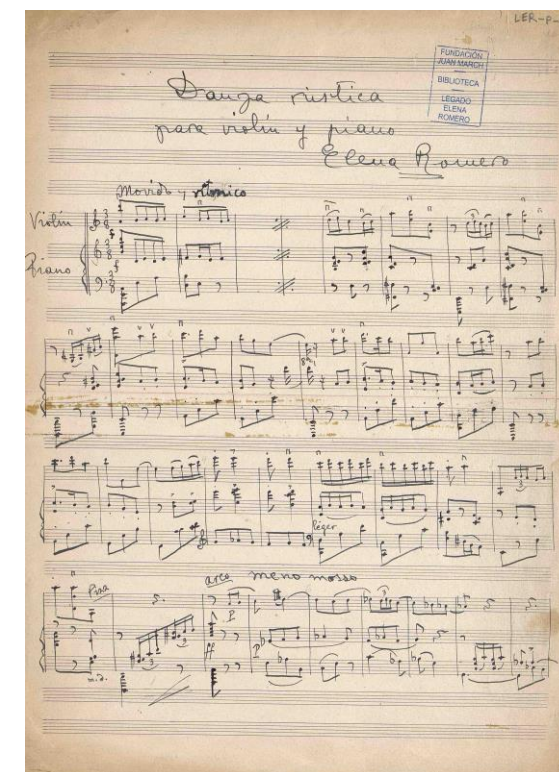 LER-P-
FUNDACIÓN
JUAN MARCH
BIBLIOTECA
LEGADO
ELENA
ROMERO
Danza rústica
para violín y piano
Elena Romero
Movido y rítmico
Violín
Piano
léger
arco meno mosso
m.d.